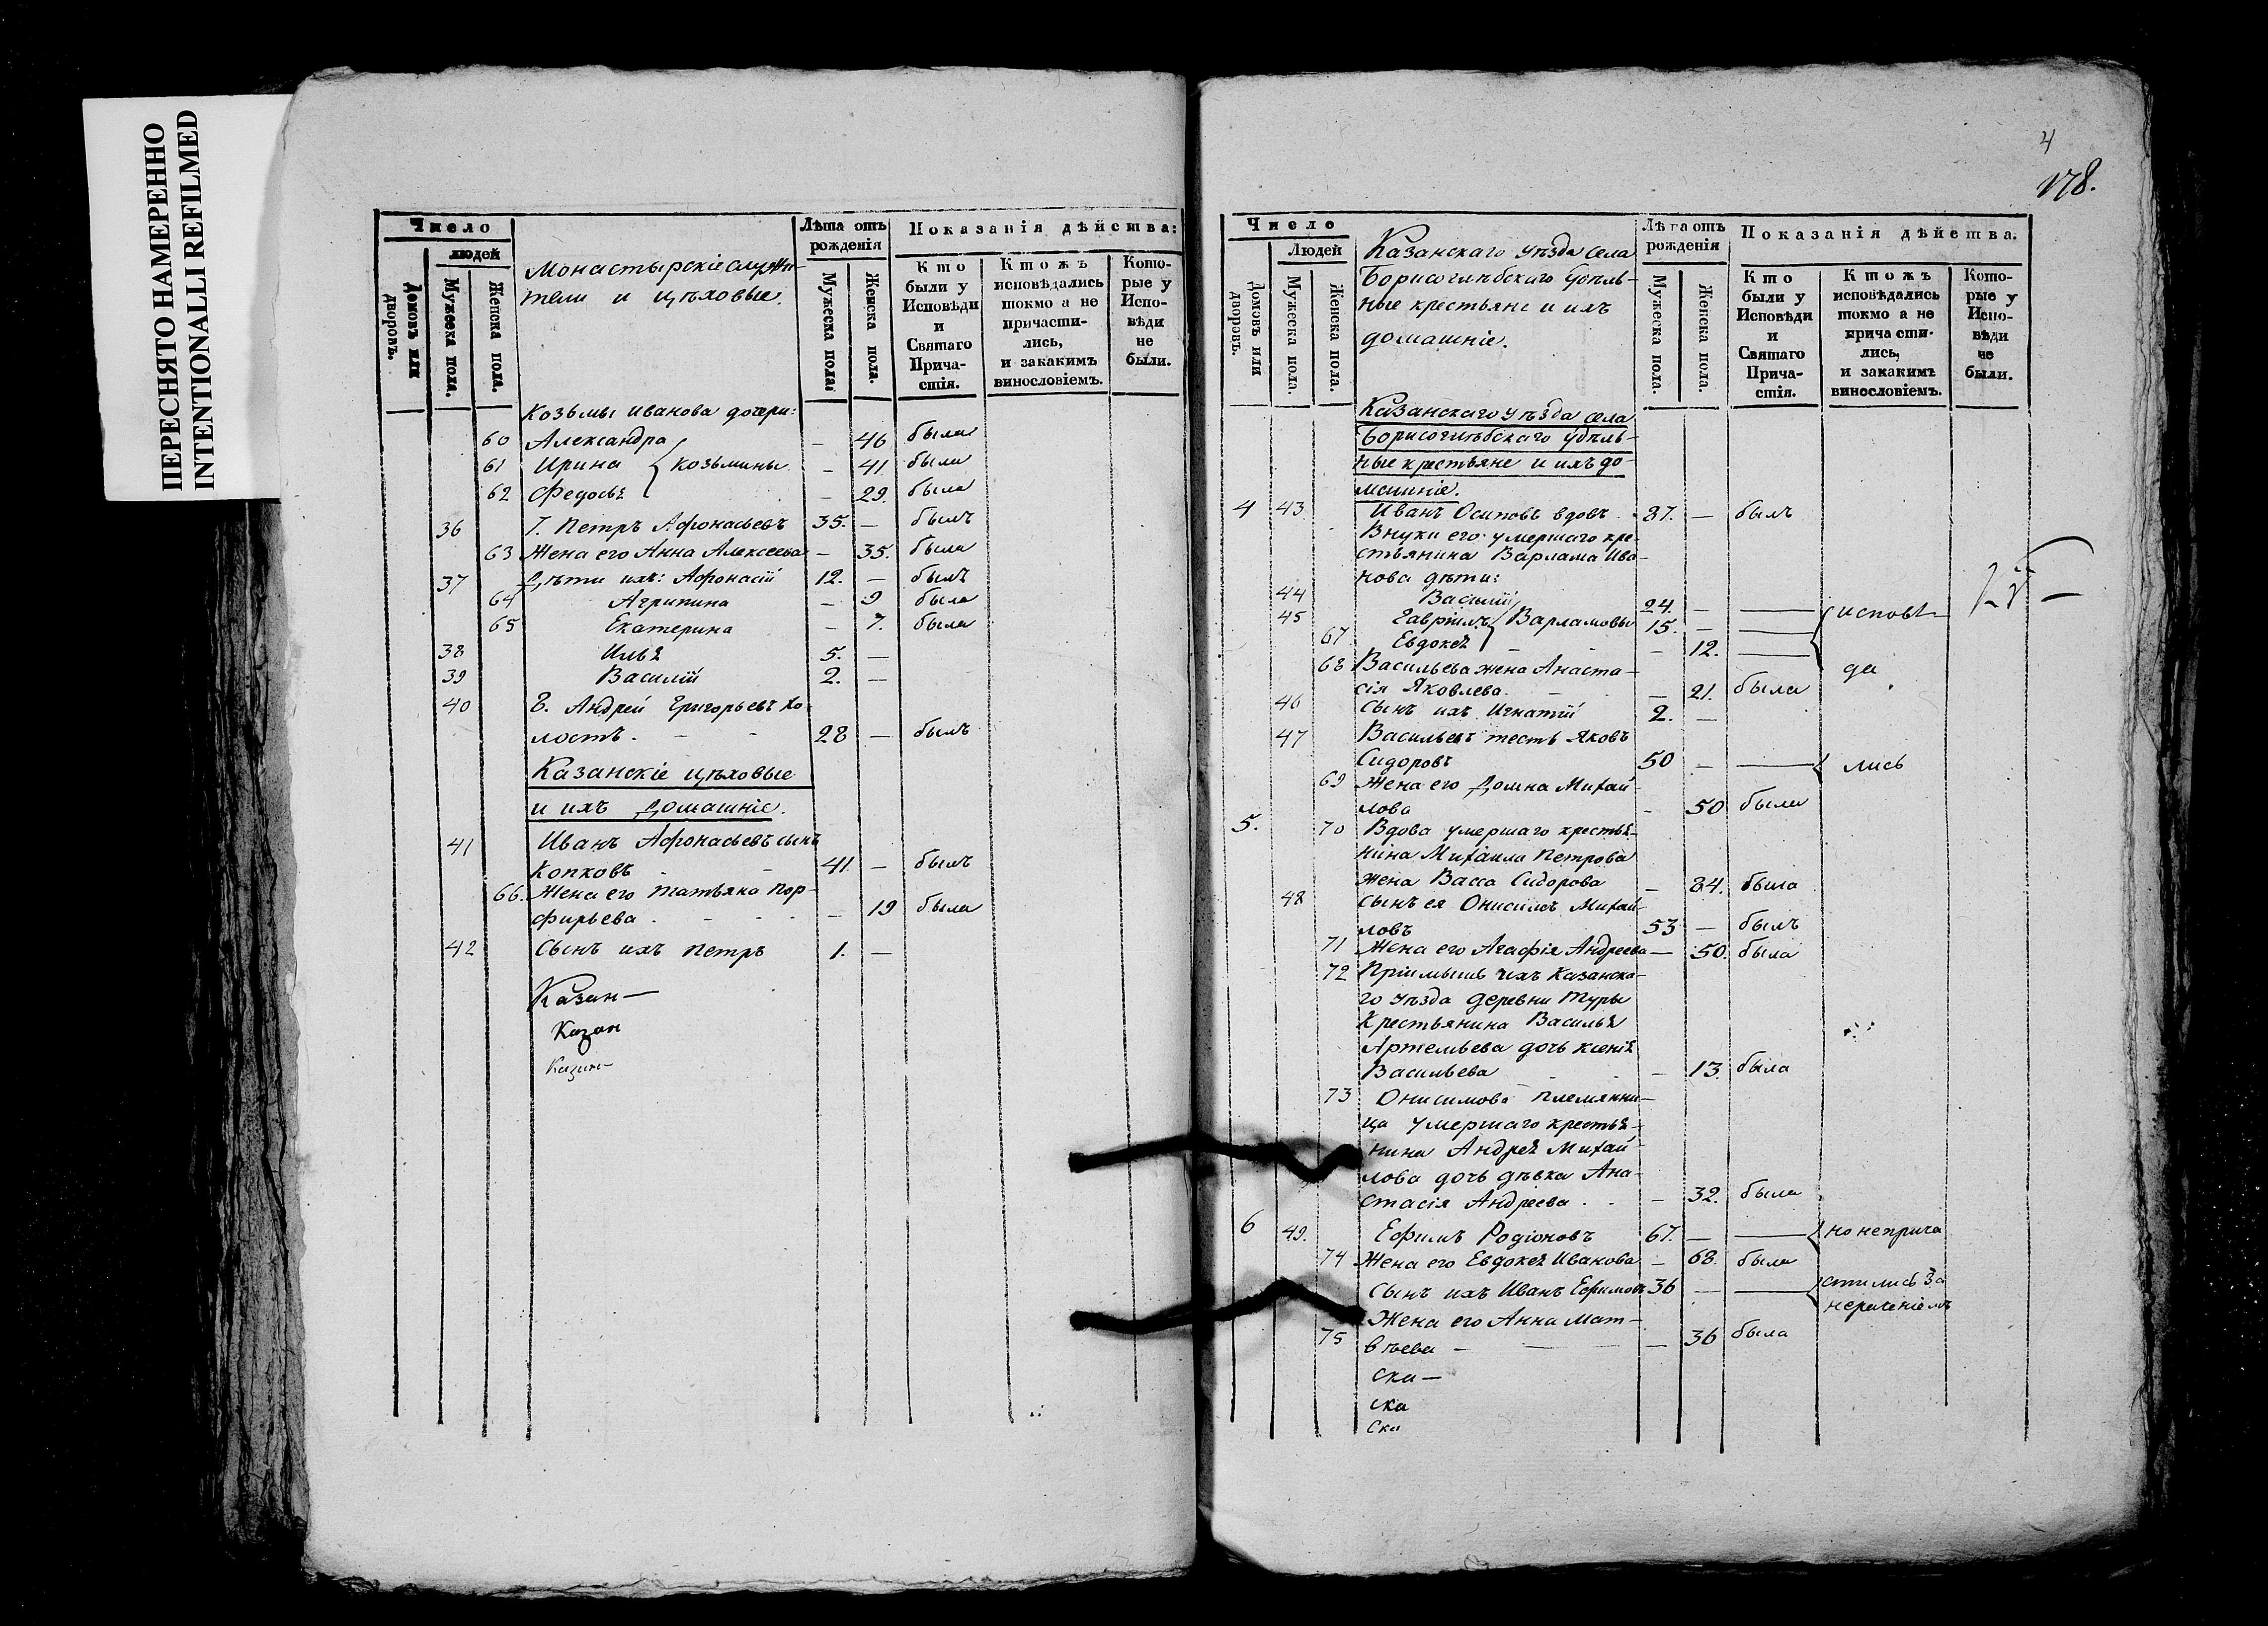 ПЕРЕСНЯТО НАМЕРЕННО
INTENTIONALLI REFILMED
Число
людей
Домовъ или дворовъ.
Мужеска пола.
Женска пола.
Монастырскіе служи-
тели и цѣховые.
Лѣта отъ рожденія
Мужеска пола.
Женска пола.
Показанія дѣйства:
Кто были у Исповѣди и Святаго Прича-стія.
Ктожъ исповѣдались токмо а не причасти-лись, и закакимъ винословіемъ.
Кото-рые у Испо-вѣди не были.
Козьмы Иванова дочери:
60 Александра – 46 была
61 Ирина Козьмины – 41 была
62 Федосья – 29. была
36 7. Петръ Афонасьевъ 35. – былъ
63 Жена его Анна Алексеева – 35. была
37 Дѣти ихъ: Афонасій 12. – былъ
64 Агрипина – 9 была
65 Екатерина – 7. была
38 Илья 5. –
39 Василій 2. –
40 8. Андрей Григорьевъ хо-
лостъ. – – 28 – былъ
Казанскіе цѣховые
и ихъ домашніе.
41 Иванъ Афонасьевъ сынъ
Копковъ 41 – былъ
66. Жена его Татьяна Пор-
фирьева – 19 была
42 Сынъ ихъ Петръ 1. –
Казан–
Казан
Казан–
4
178.
Число
Людей
Домовъ или дворовъ.
Мужеска пола.
Женска пола.
Казанскаго уѣзда села
Борисоглѣбскаго удѣль-
ные крестьяне и ихъ
домашніе.
Лѣта отъ рожденія
Мужеска пола.
Женска пола.
Показанія дѣйства.
Кто были у Исповѣди и Святаго Прича-стія.
Ктожъ исповѣдались токмо а не причасти-лись, и закакимъ винословіемъ.
Кото-рые у Испо-вѣди не были.
Казанскаго уѣзда села
Борисоглѣбскаго удѣль-
ные крестьяне и ихъ до-
машніе.
4 43 Иванъ Осиповъ вдовъ 87. – былъ
Внуки его умершаго кре-
стьянина Варлама Ива-
нова дѣти:
44 Василій 24. – — исповѣ-
45 Гавріилъ Варламовы 15. – —
67 Евдокея – 12. —
да
68 Васильева жена Анаста-
сія Яковлева – 21. была
46 Сынъ ихъ Игнатій 2. –
47 Васильевъ тесть Яковъ
Сидоровъ 50 – — лись
69 Жена его Домна Михай-
лова – 50 была
5. 70 Вдова умершаго крестья-
нина Михаила Петрова
жена Васса Сидорова – 84. была
48 Сынъ ея Онисимъ Михай-
ловъ 53 – былъ
71 Жена его Агафія Андреева – 50. была
72 Пріимышъ ихъ Казанска-
го уѣзда деревни Туры
Крестьянина Василья
Артемьева дочь Ксенія
Васильева – 13. была
73 Онисимова племянни-
ца умершаго крестья-
нина Андрея Михай-
лова дочь дѣвка Ана-
стасія Андреева – 32. была
6 49. Ефимъ Родіоновъ 67. – — но неприча
74 Жена его Евдокея Иванова – 68. была
Сынъ ихъ Иванъ Ефимовъ 36 – — стились за
нераченіемъ
Жена его Анна Мат-
75 вѣева – – 36 была
ска–
ска
ска